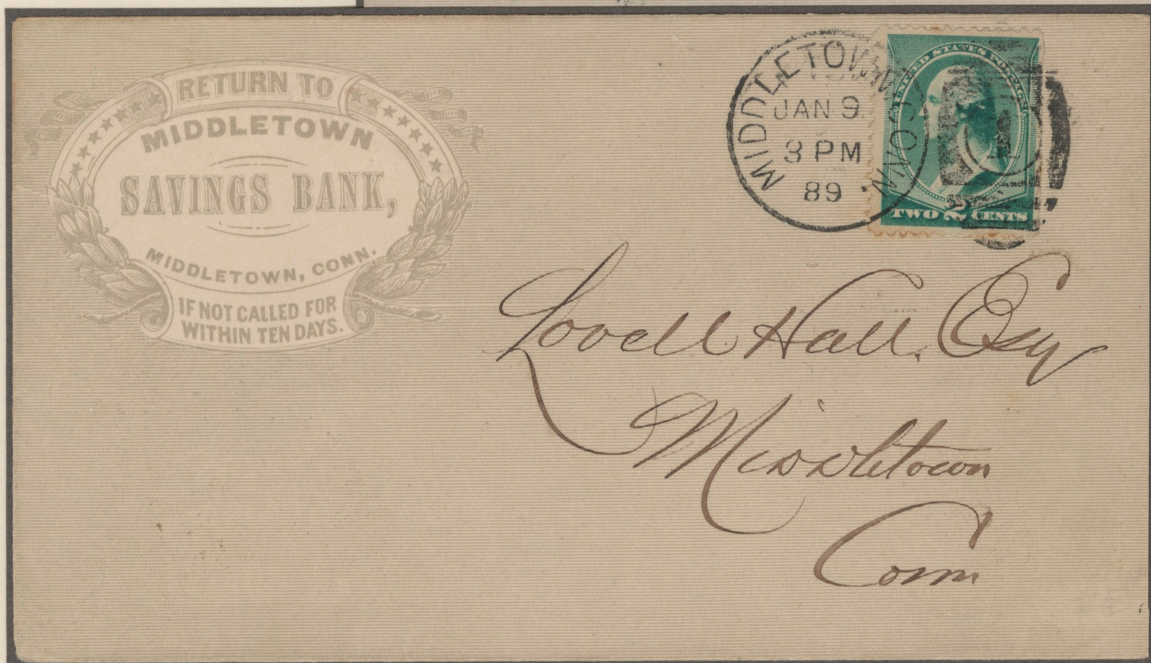 RETURN TO
MIDDLETOWN
SAVINGS BANK,
MIDDLETOWN, CONN.
IF NOT CALLED FOR
WITHIN TEN DAYS.
MIDDLETOWN, CONN.
JAN 9
3 PM
89
UNITED STATES POSTAGE
TWO 2 CENTS
1
Lovell Hall, Esq
Middletown
Conn